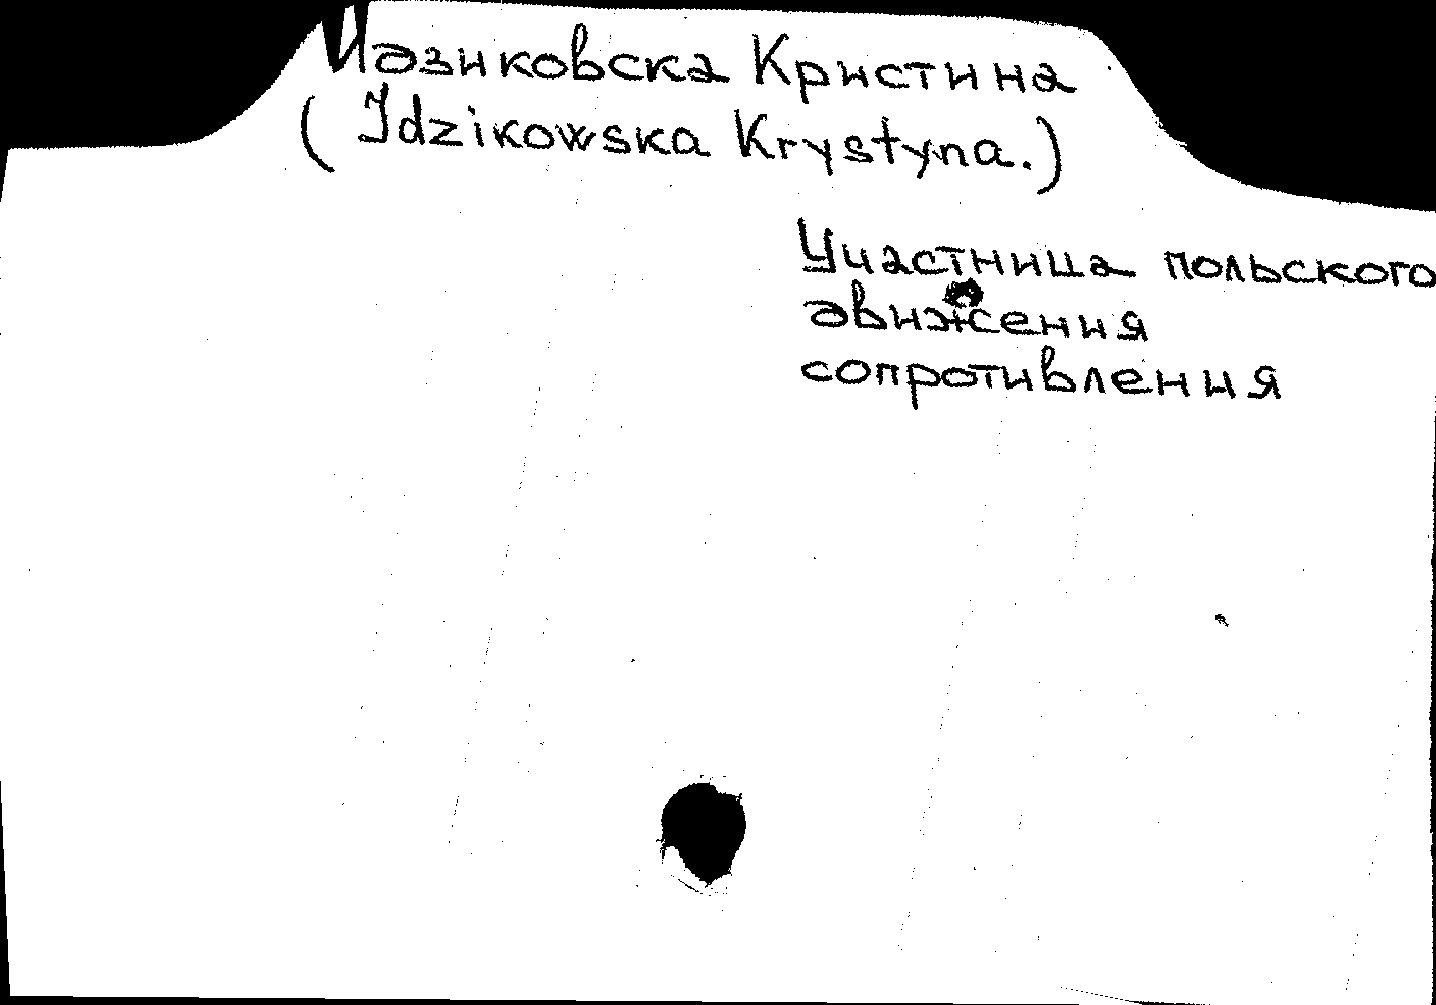 Идзиковска Кристина
(Idzikowska Krystyna.)
Участница польского
движения
сопротивления